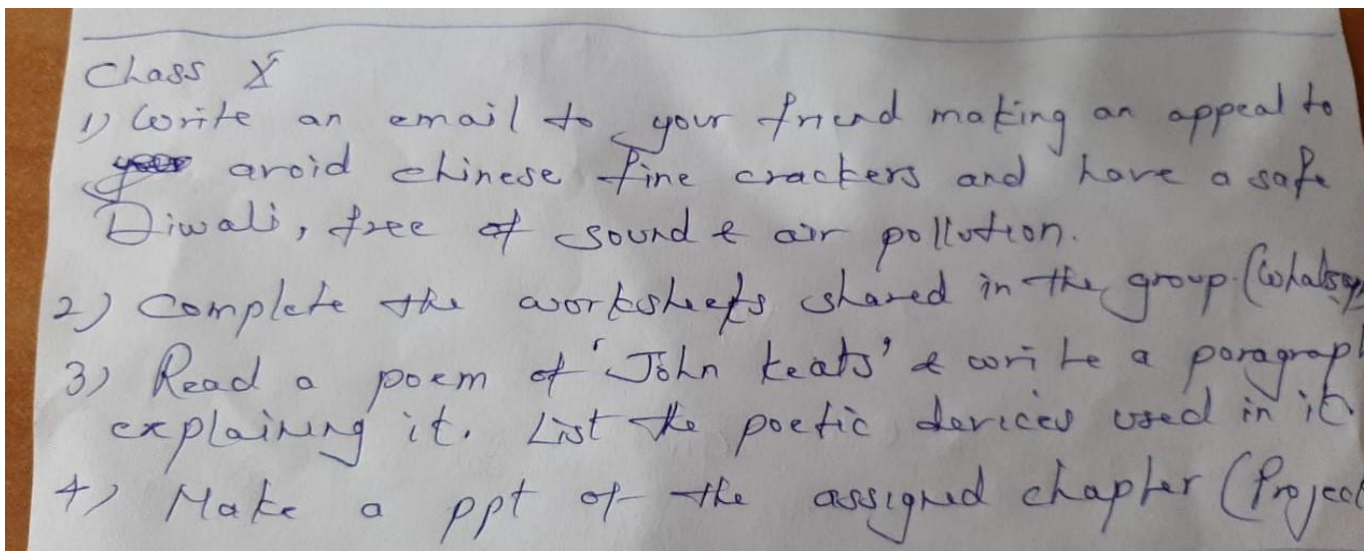 Class X
1) Write an email to your friend making an appeal to
avoid chinese fine crackers and have a safe
Diwali, free of sound & air pollution.
2) Complete the worksheets shared in the group. (Whatsap
3) Read a poem of 'John keats' & write a paragrap
explaining it. List the poetic devices used in it
4) Make a ppt of the assigned chapter (Project